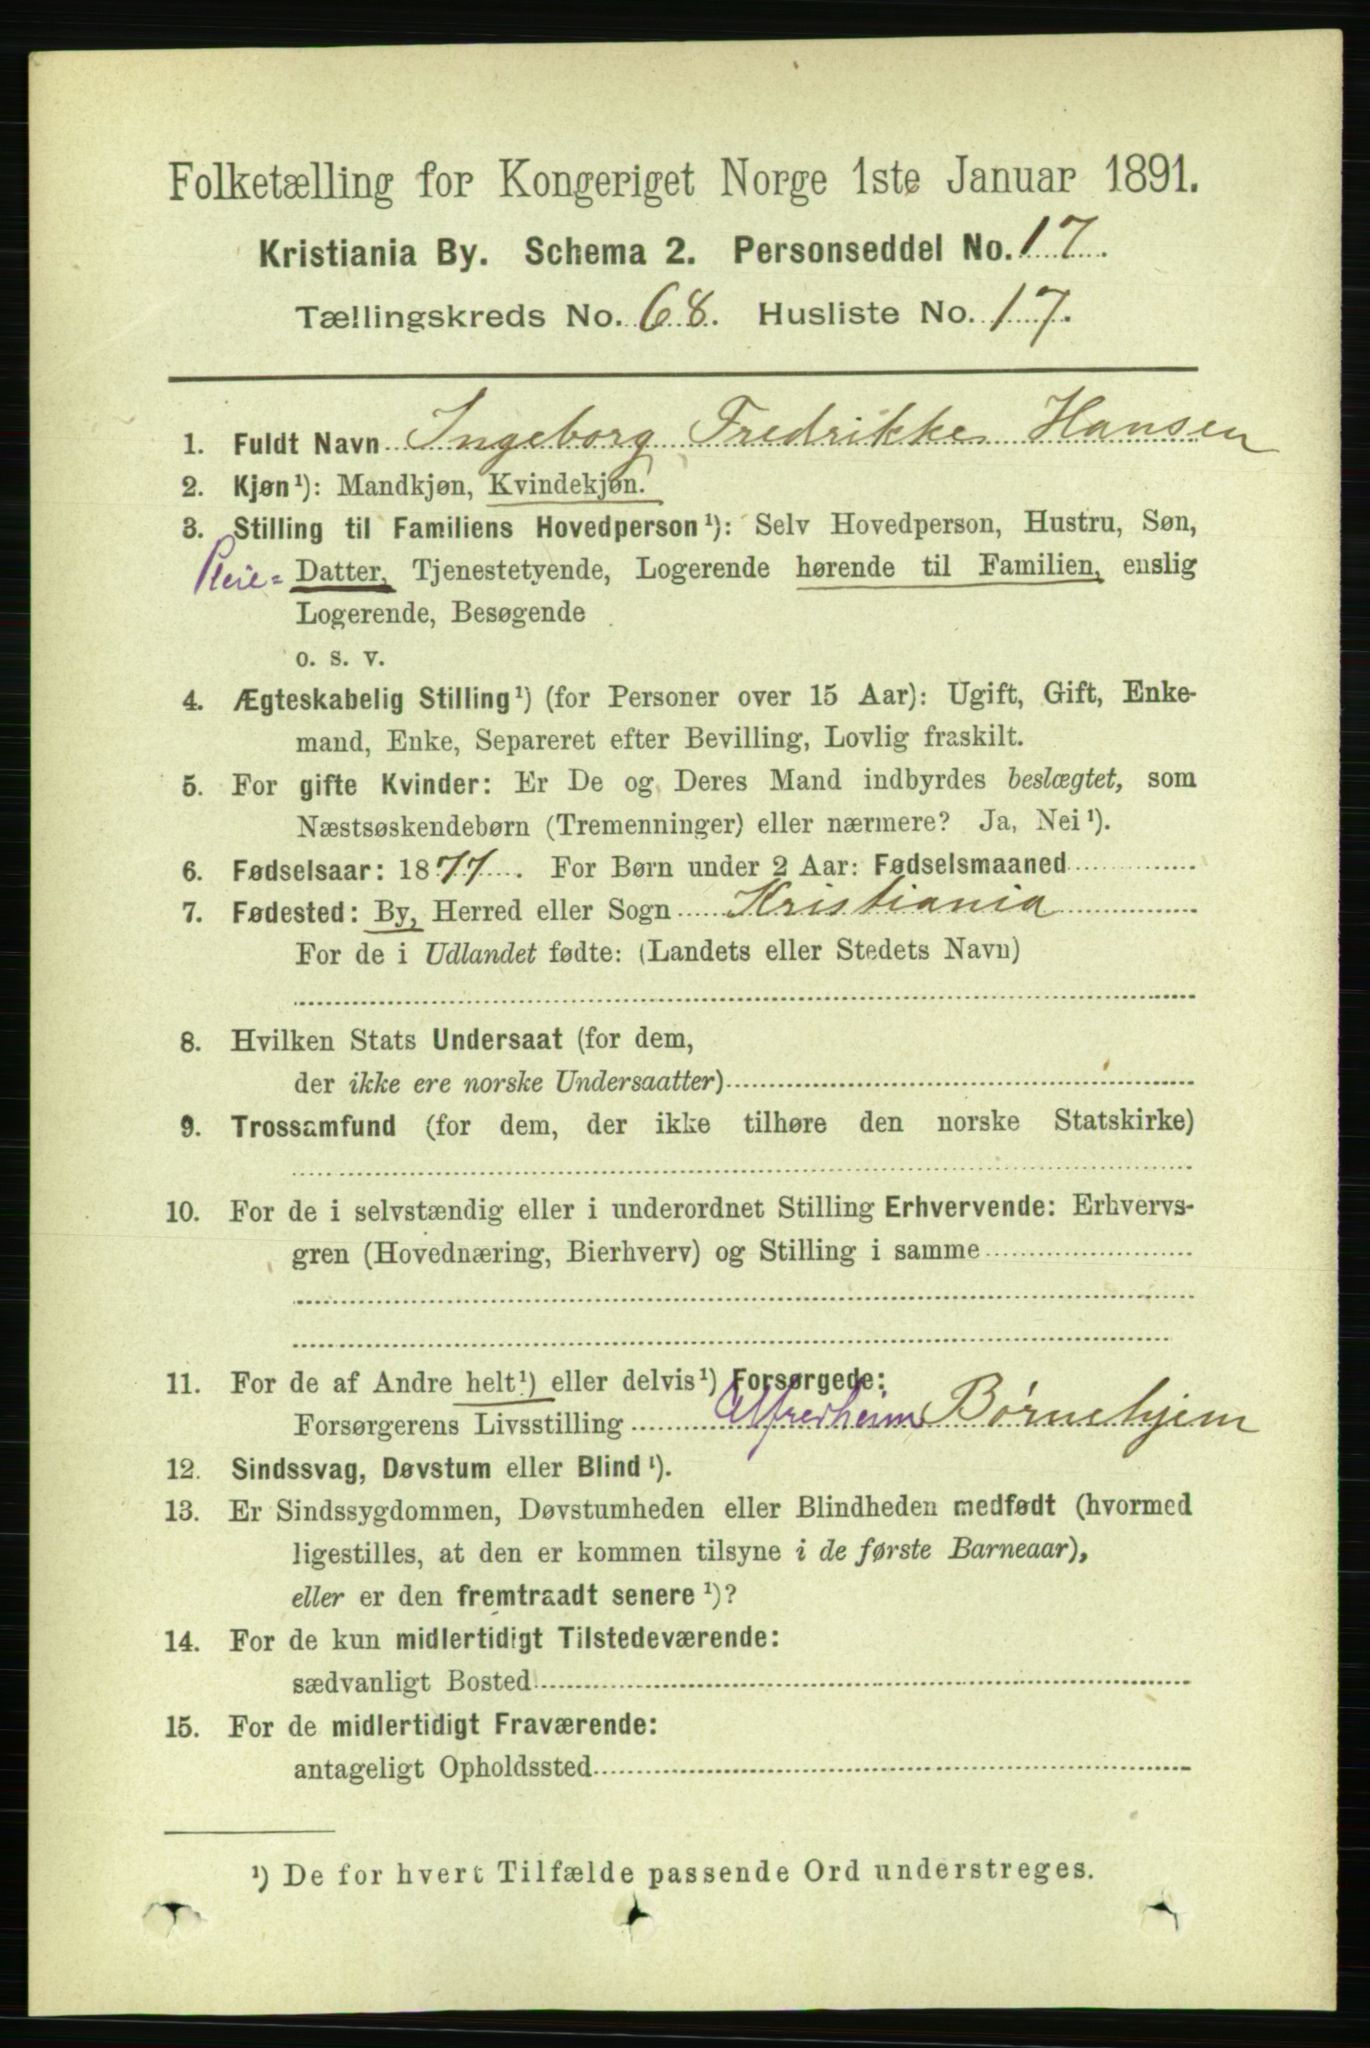 Folketælling for Kongeriget Norge 1ste Januar 1891.
Kristiania By. Schema 2. Personseddel No. 17.
Tællingskreds No. 68. Husliste No. 17.
1. Fuldt Navn Ingeborg Fredrikke Hansen
2. Kjøn¹): Mandkjøn, Kvindekjøn.
3. Stilling til Familiens Hovedperson¹): Selv Hovedperson, Hustru, Søn,
Pleie= Datter, Tjenestetyende, Logerende hørende til Familien, enslig
Logerende, Besøgende
o. s. v.
4. Ægteskabelig Stilling¹) (for Personer over 15 Aar): Ugift, Gift, Enke-
mand, Enke, Separeret efter Bevilling, Lovlig fraskilt.
5. For gifte Kvinder: Er De og Deres Mand indbyrdes beslægtet, som
Næstsøskendebørn (Tremenninger) eller nærmere? Ja, Nei¹).
6. Fødselsaar: 1877. For Børn under 2 Aar: Fødselsmaaned
7. Fødested: By, Herred eller Sogn Kristiania
For de i Udlandet fødte: (Landets eller Stedets Navn)
8. Hvilken Stats Undersaat (for dem,
der ikke ere norske Undersaatter)
9. Trossamfund (for dem, der ikke tilhøre den norske Statskirke)
10. For de i selvstændig eller i underordnet Stilling Erhvervende: Erhvervs-
gren (Hovednæring, Bierhverv) og Stilling i samme
11. For de af Andre helt¹) eller delvis¹) Forsørgede:
Forsørgerens Livsstilling Alfredheim Børnehjem
12. Sindssvag, Døvstum eller Blind¹).
13. Er Sindssygdommen, Døvstumheden eller Blindheden medfødt (hvormed
ligestilles, at den er kommen tilsyne i de første Barneaar),
eller er den fremtraadt senere¹)?
14. For de kun midlertidigt Tilstedeværende:
sædvanligt Bosted
15. For de midlertidigt Fraværende:
antageligt Opholdssted
¹) De for hvert Tilfælde passende Ord understreges.